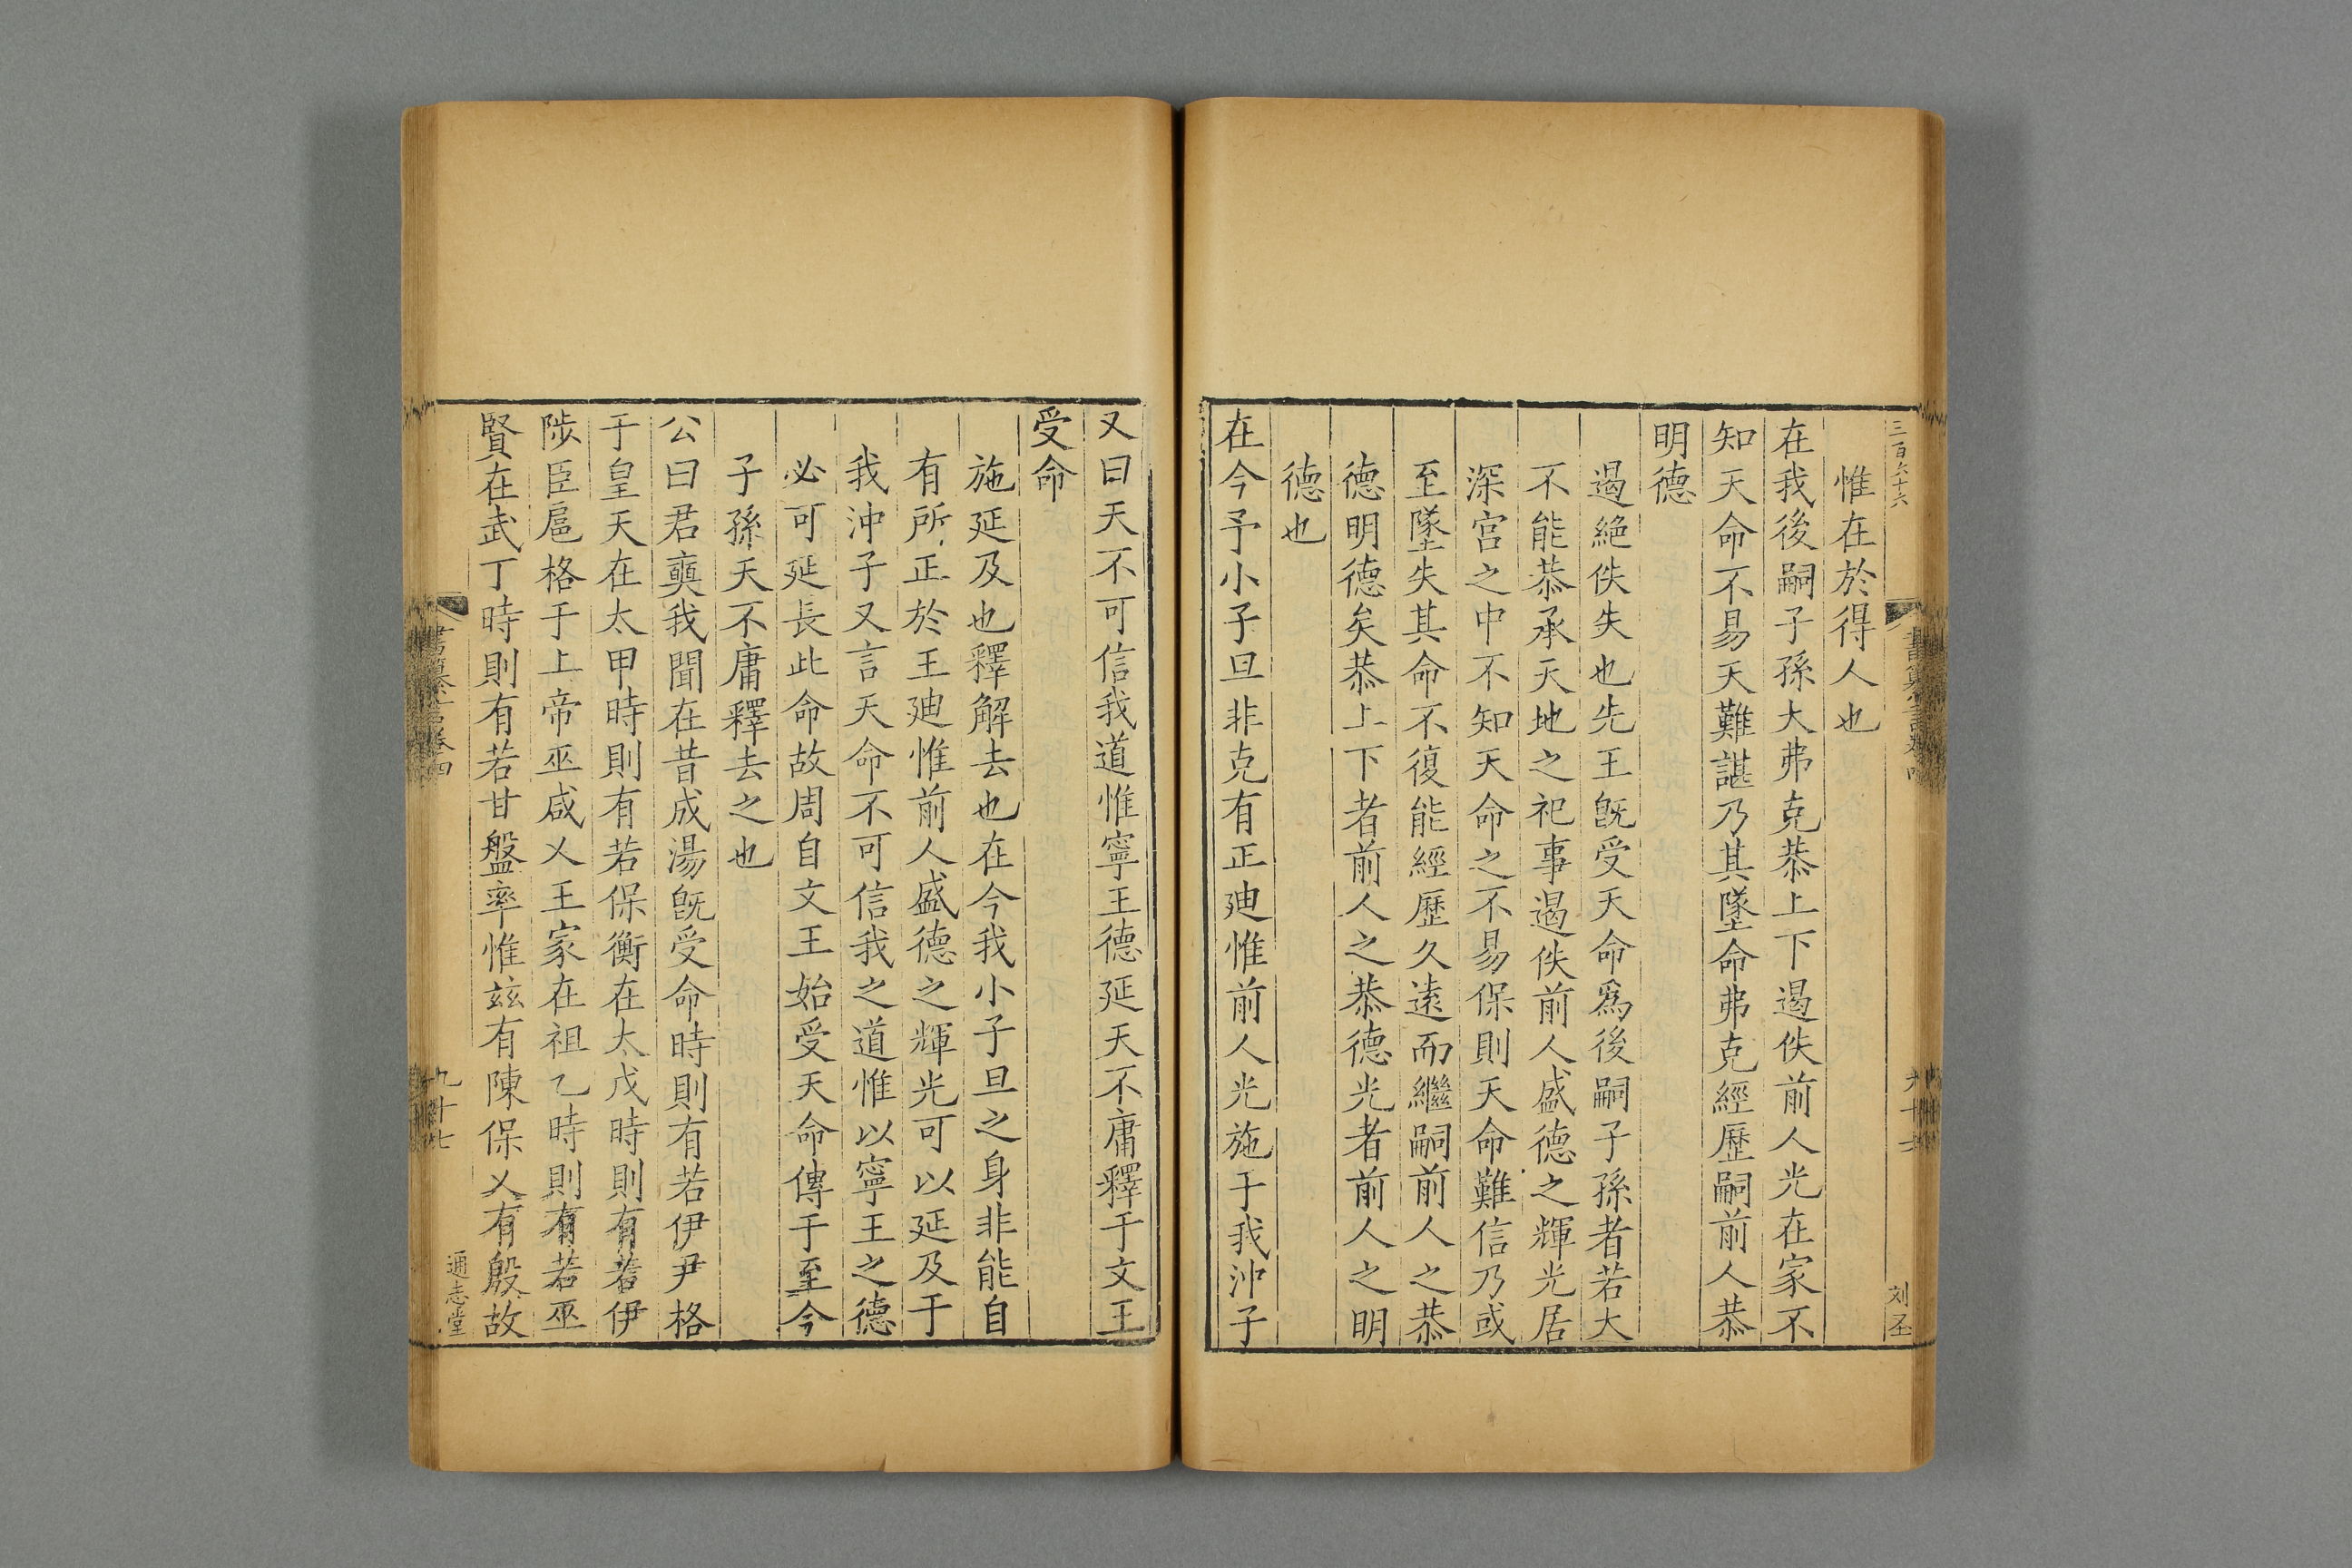 三百六十六
刘丕
惟在於得人也
在我後嗣子孫大弗克恭上下遏佚前人光在家不
知天命不易天難諶乃其墜命弗克經歷嗣前人恭
明德
遏絶佚失也先王旣受天命爲後嗣子孫者若大
不能恭承天地之祀事遏佚前人盛德之輝光居
深宫之中不知天命之不易保則天命難信乃或
至墜失其命不復能經歷久遠而繼嗣前人之恭
德明德矣恭上下者前人之恭德光者前人之明
德也
在今予小子旦非克有正廸惟前人光施于我沖子
又曰天不可信我道惟寧王德延天不庸釋于文王
受命
施延及也釋解去也在今我小子旦之身非能自
有所正於王廸惟前人盛德之輝光可以延及于
我沖子又言天命不可信我之道惟以寧王之德
必可延長此命故周自文王始受天命傳于至今
子孫天不庸釋去之也
公曰君奭我聞在昔成湯旣受命時則有若伊尹格
于皇天在太甲時則有若保衡在太戊時則有若伊
陟臣扈格于上帝巫咸乂王家在祖乙時則有若巫
賢在武丁時則有若甘盤率惟玆有陳保乂有殷故
書纂言卷四
九十七
通志堂